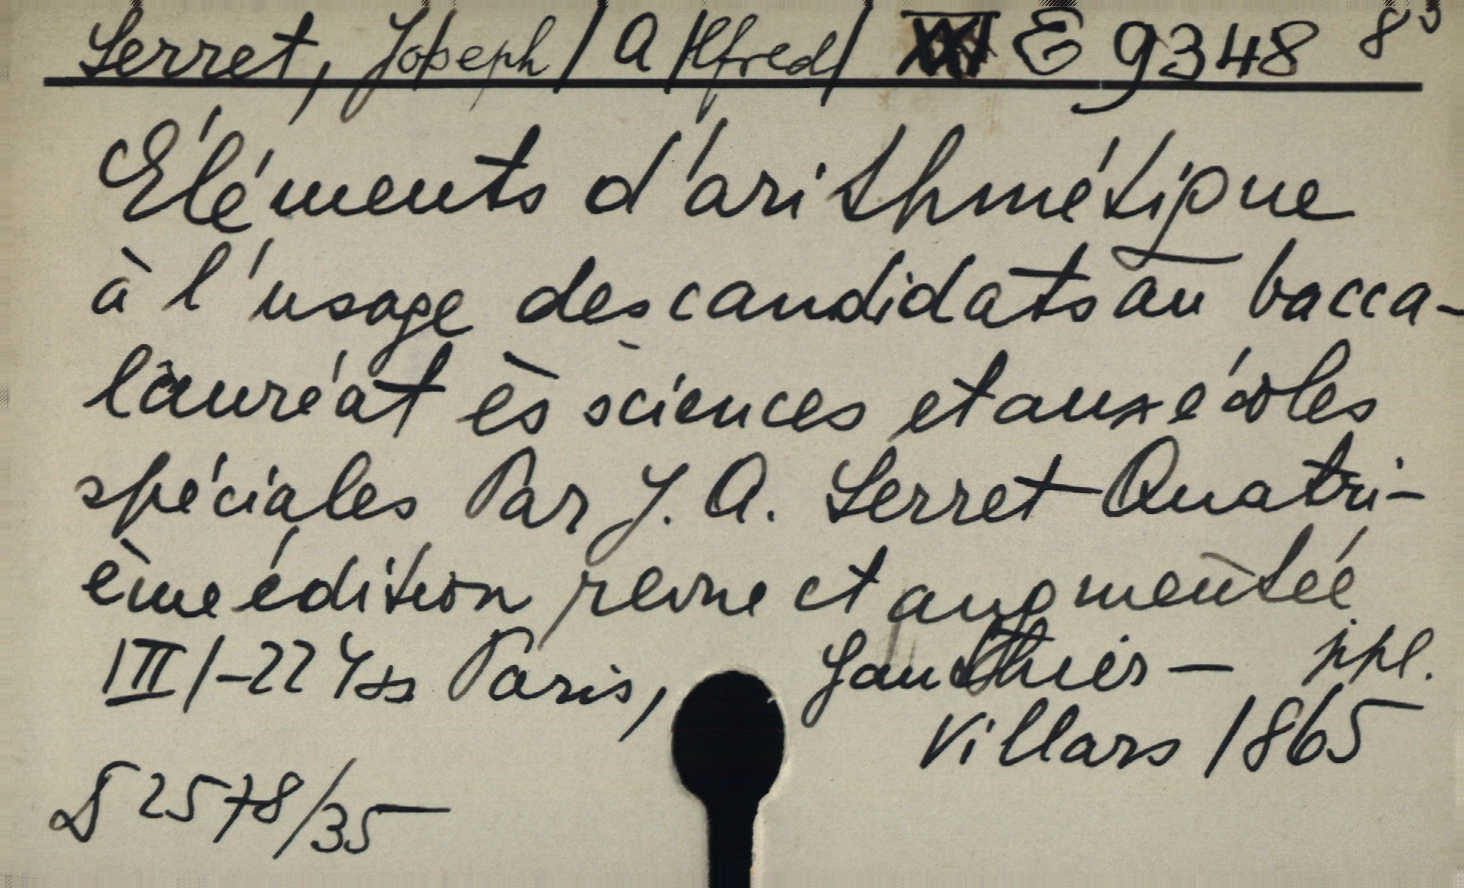 Serret, Joseph/A/lfred/ E 9348 8°
Eléments d'arithmétique
à l'usage des candidats au bacca-
lauréat ès sciences et aux écoles
spéciales Par J. A. Serret Quatri-
ème édition revue et augmentée
III/-224ss Paris, Gauthier- ppl.
Villars 1865
D 2578/35